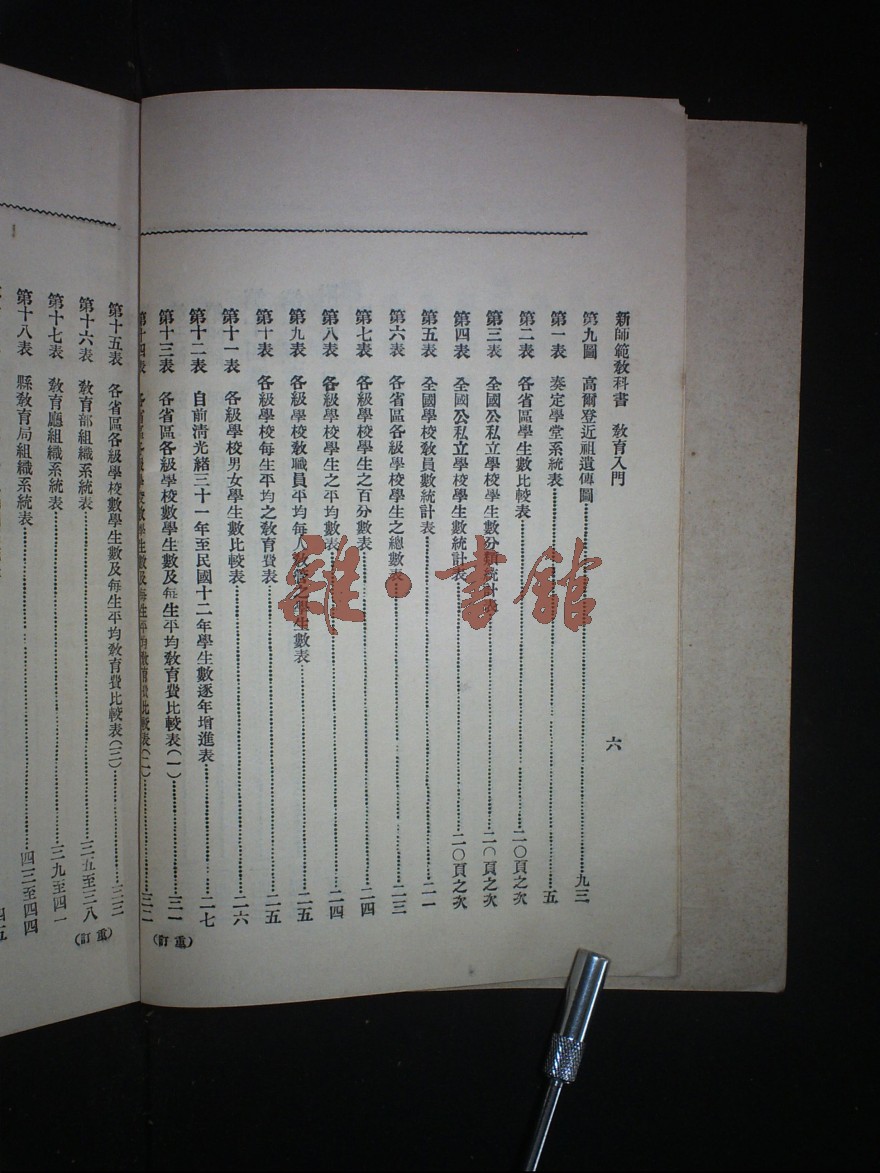 新師範教科書　教育入門
六
第九圖　高爾登近祖遺傳圖……九三
第一表　奏定學堂系統表……五
第二表　各省區學生數比較表……二〇頁之次
第三表　全國公私立學校學生數分類統計表……二〇頁之次
第四表　全國公私立學校學生數統計表……二〇頁之次
第五表　全國學校教員數統計表……二一
第六表　各省區各級學校學生之總數表……二三
第七表　各級學校學生之百分數表……二四
第八表　各級學校學生之平均數表……二四
第九表　各級學校教職員平均每人教管之學生數表……二五
第十表　各級學校每生平均之教育費表……二五
第十一表　各級學校男女學生數比較表……二六
第十二表　自前清光緒三十一年至民國十二年學生數逐年增進表……二七
第十三表　各省區各級學校數學生數及每生平均教育費比較表(一)……三一
(重訂)
第十四表　各省區各級學校數學生數及每生平均教育費比較表(二)……三二
第十五表　各省區各級學校數學生數及每生平均教育費比較表(三)……三三
第十六表　教育部組織系統表……三五至三八
(重訂)
第十七表　教育廳組織系統表……三九至四一
第十八表　縣教育局組織系統表……四三至四四
雜·書館